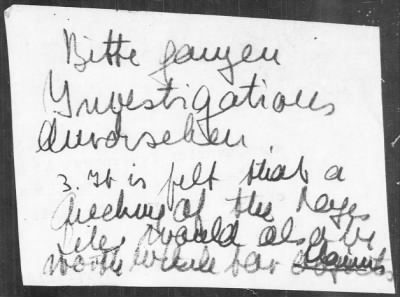 Bitte ganzen
Investigations
durchsehen
3. It is felt that a
checking of the
files would also be
worth while